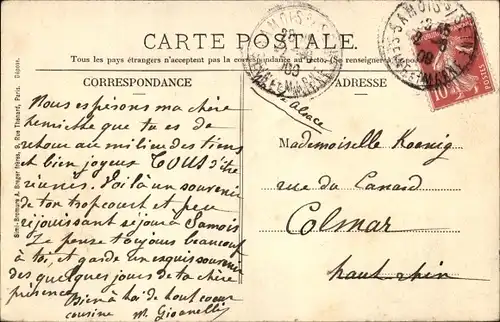 CARTE POSTALE
Tous les pays étrangers n'acceptent pas la correspondance au Recto. (Se renseigner à la Poste)
CORRESPONDANCE
ADRESSE
Simili-Bromure A. Breger frères, 9, Rue Thénard, Paris. Déposé.
Nous espérons ma chère
que tu es de
retour au milieu des tiens
et bien joyeux TOUS d'être
réunies. Voilà un souvenir
de ton trop court et peu
réjouissant séjour à Samois
Je pense toujours beaucoup
à toi, et garde un exquis souvenir
des quelques jours de ta chère
présence.
Bien à toi de tout coeur
cousine M. Gioanelli
alsace
Mademoiselle Koenig
rue du Canard
Colmar
haut rhin
SAMOIS
SEINE-ET-MARNE
08
SAMOIS
SEINE-ET-MARNE
08
10
POSTES